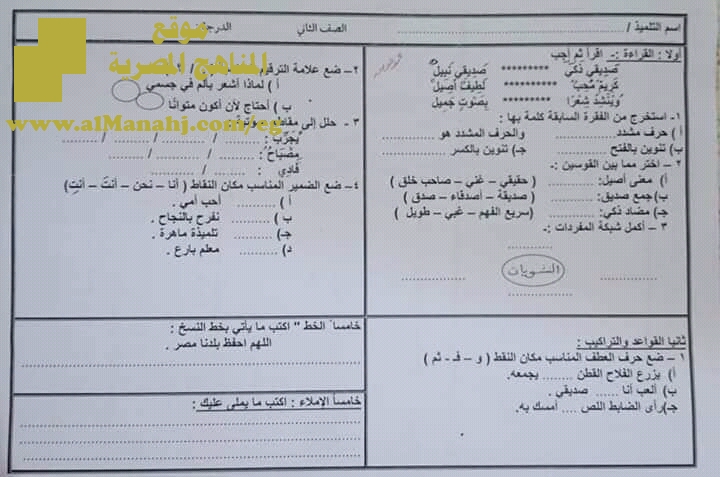 اسم التلميذ / ........................
الصف الثاني
الدرجة
أولا : القراءة :- اقرأ ثم أجب
صَديقي ذَكي ********* صَديقي نَبيلٌ
كَريمٌ مُحِبٌ ********* لَطيفٌ أَصيلٌ
ويُنشِدُ شِعْرًا ********* بِصَوتٍ جَميل
١- استخرج من الفقرة السابقة كلمة بها :
أ ) حرف مشدد .......... والحرف المشدد هو ..........
ب) تنوين بالفتح .......... جـ) تنوين بالكسر ..........
٢ – اختر مما بين القوسين :
أ) معنى أصيل: .......... ( حقيقي – غني – صاحب خلق )
ب)جمع صديق: .......... ( صديقة – أصدقاء – صدق )
جـ) مضاد ذكي: .......... (سريع الفهم – غبي – طويل )
٣ – أكمل شبكة المفردات :-
النشويات
ثانيا القواعد والتراكيب :
١ – ضع حرف العطف المناسب مكان النقط ( و – فـ - ثم )
أ) يزرع الفلاح القطن ........ يجمعه.
ب) ألعب أنا ...... صديقي .
جـ)رأى الضابط اللص .... أمسك به.
٢– ضع علامة الترقيم
أ ) لماذا أشعر بألم في جسمي
ب ) أحتاج لأن أكون متوازنًا
٣ - حلل إلى مقاطع صوتية
يُجَرِّبُ : ........ / ........ / ........ / ........
مِصْبَاحٌ : ........ / ........ / ........
٤ – ضع الضمير المناسب مكان النقاط ( أنا – نحن – أنتَ – أنتِ)
أ ) .......... أحب أمي .
ب ) .......... نفرح بالنجاح .
جـ) .......... تلميذة ماهرة .
د) .......... معلم بارع .
خامساً الخط " اكتب ما يأتي بخط النسخ :
اللهم احفظ بلدنا مصر .
خامساً الإملاء : اكتب ما يملى عليك :
موقع
المناهج المصرية
www.alManahj.com/eg